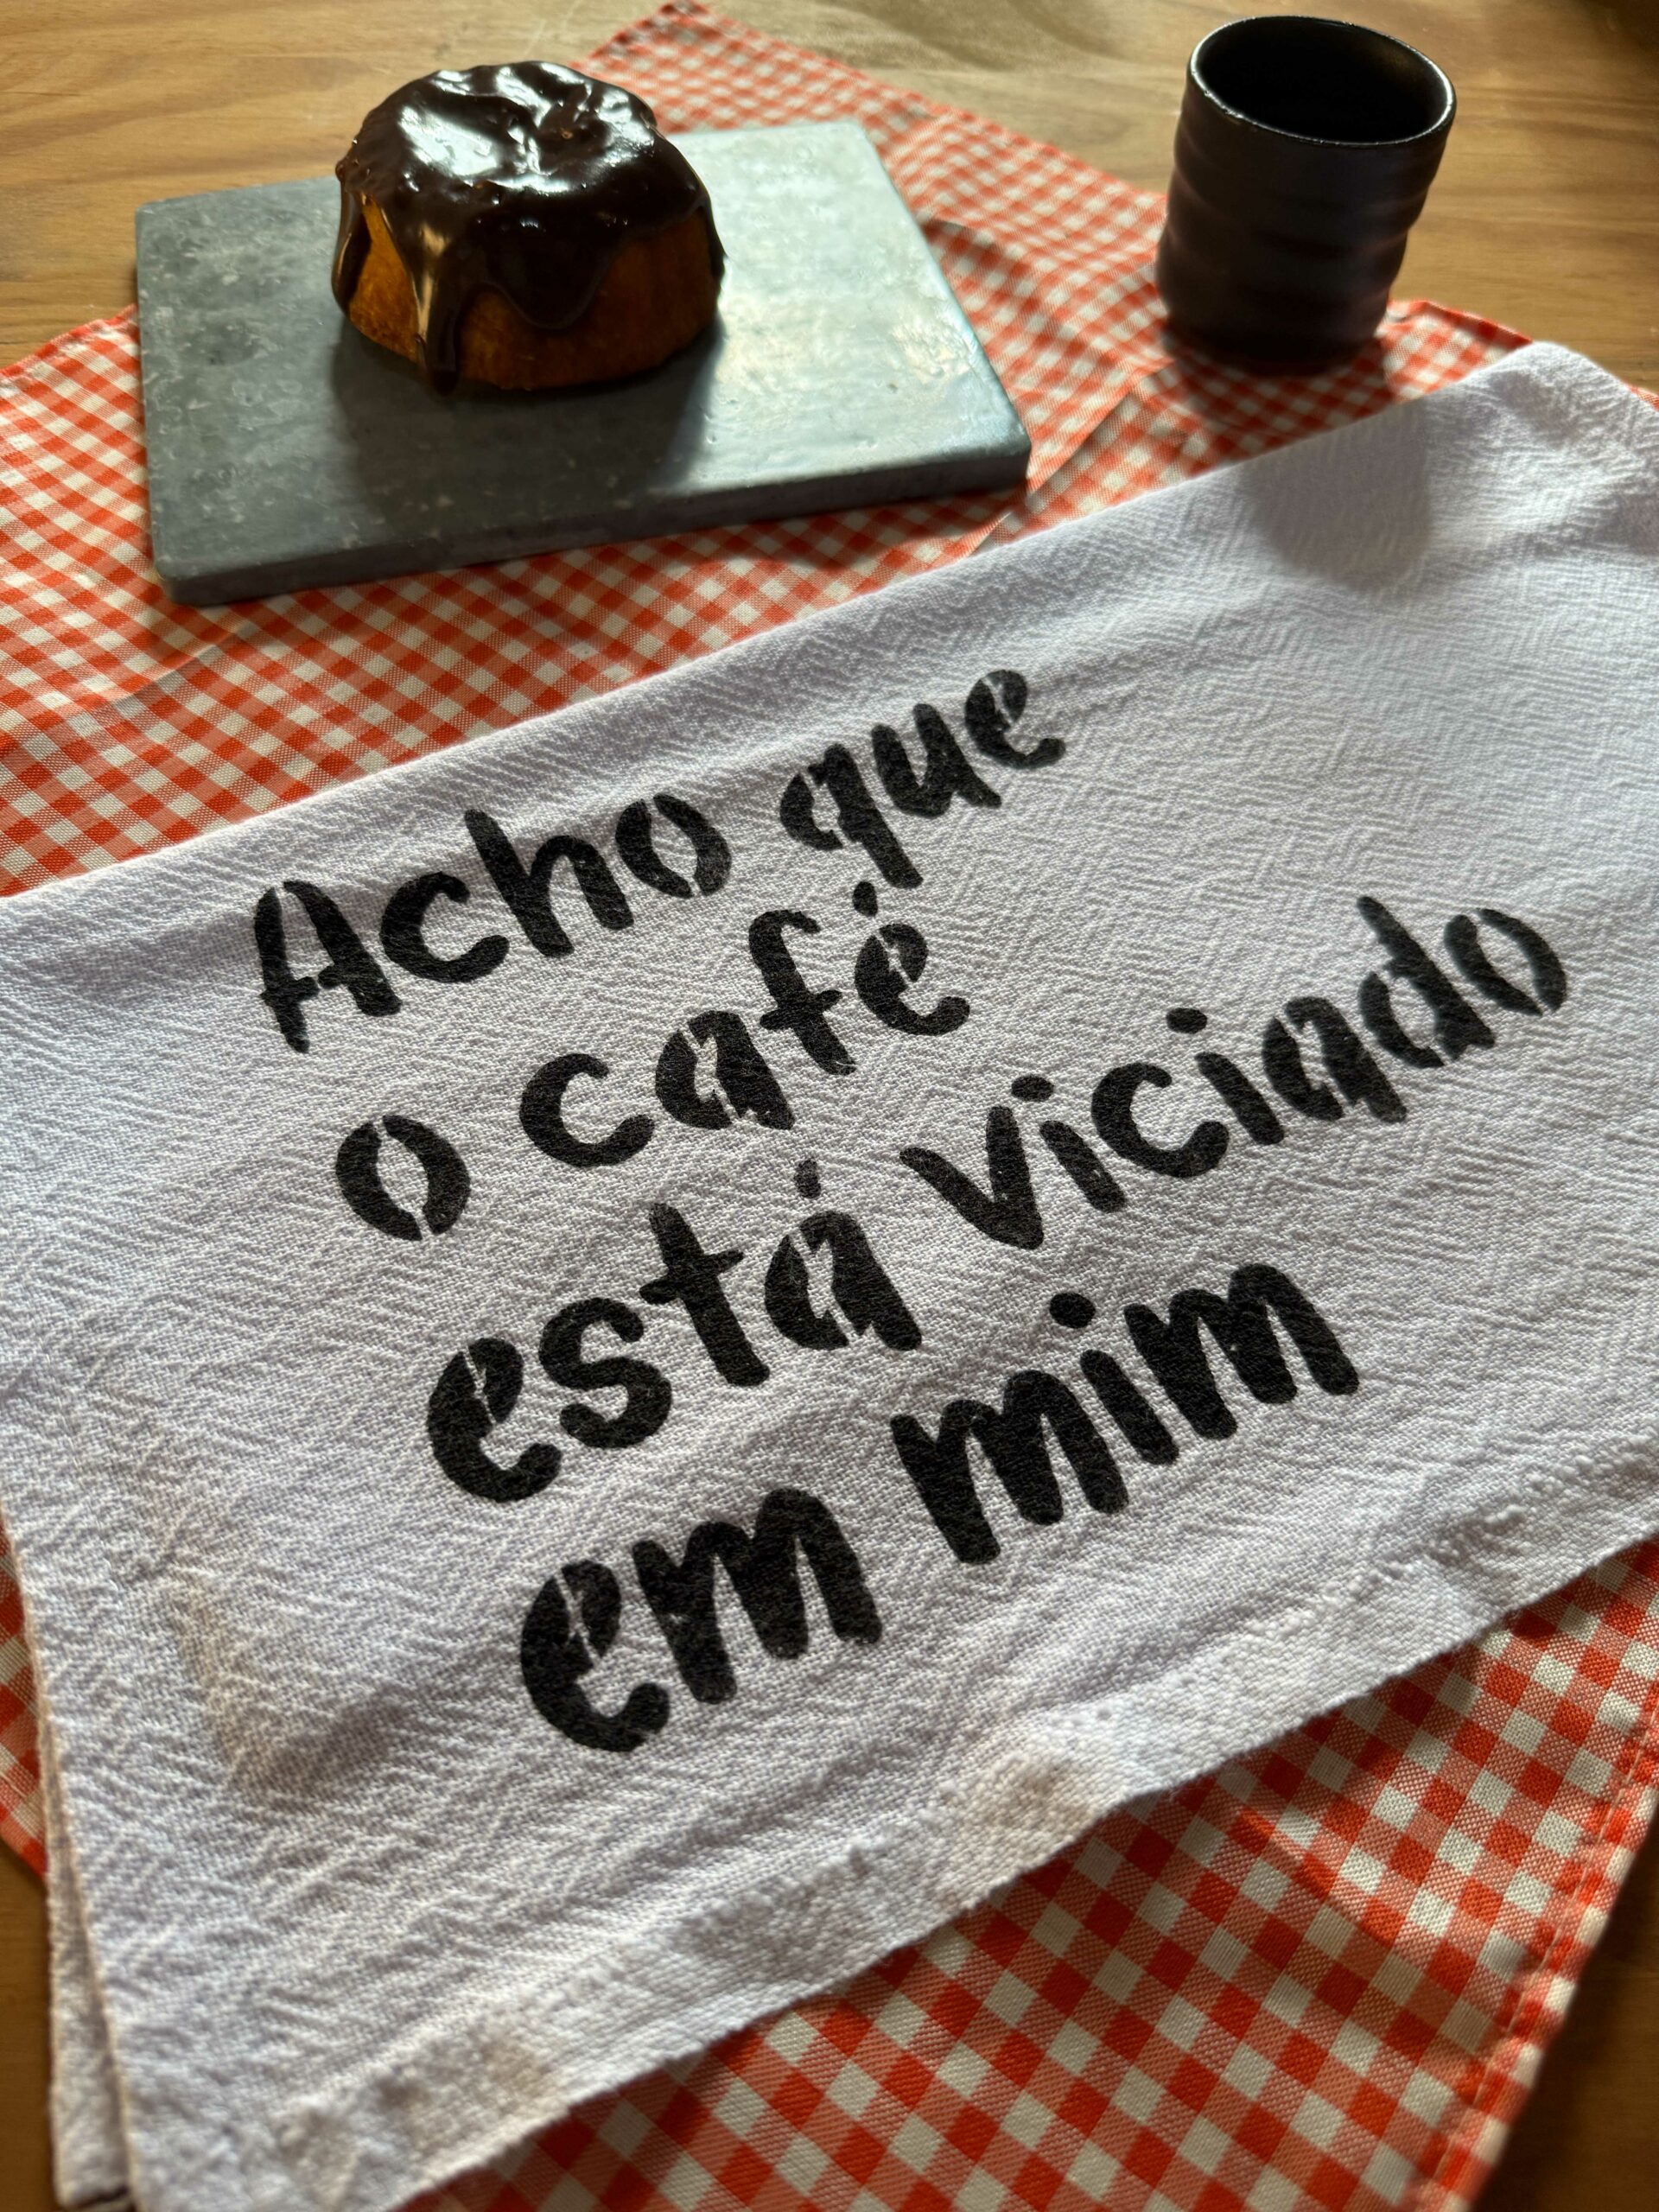 Acho que
o café
está viciado
em mim